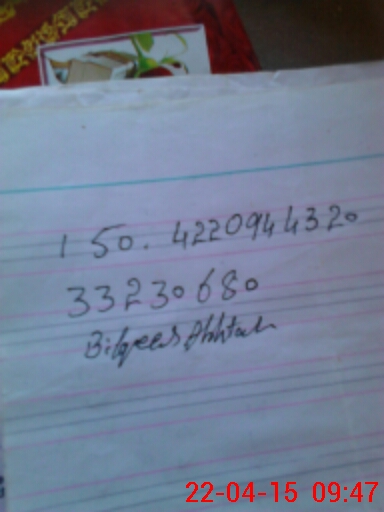 150. 4220944320
33230680
Bilqees Akhtar
22-04-15 09:47